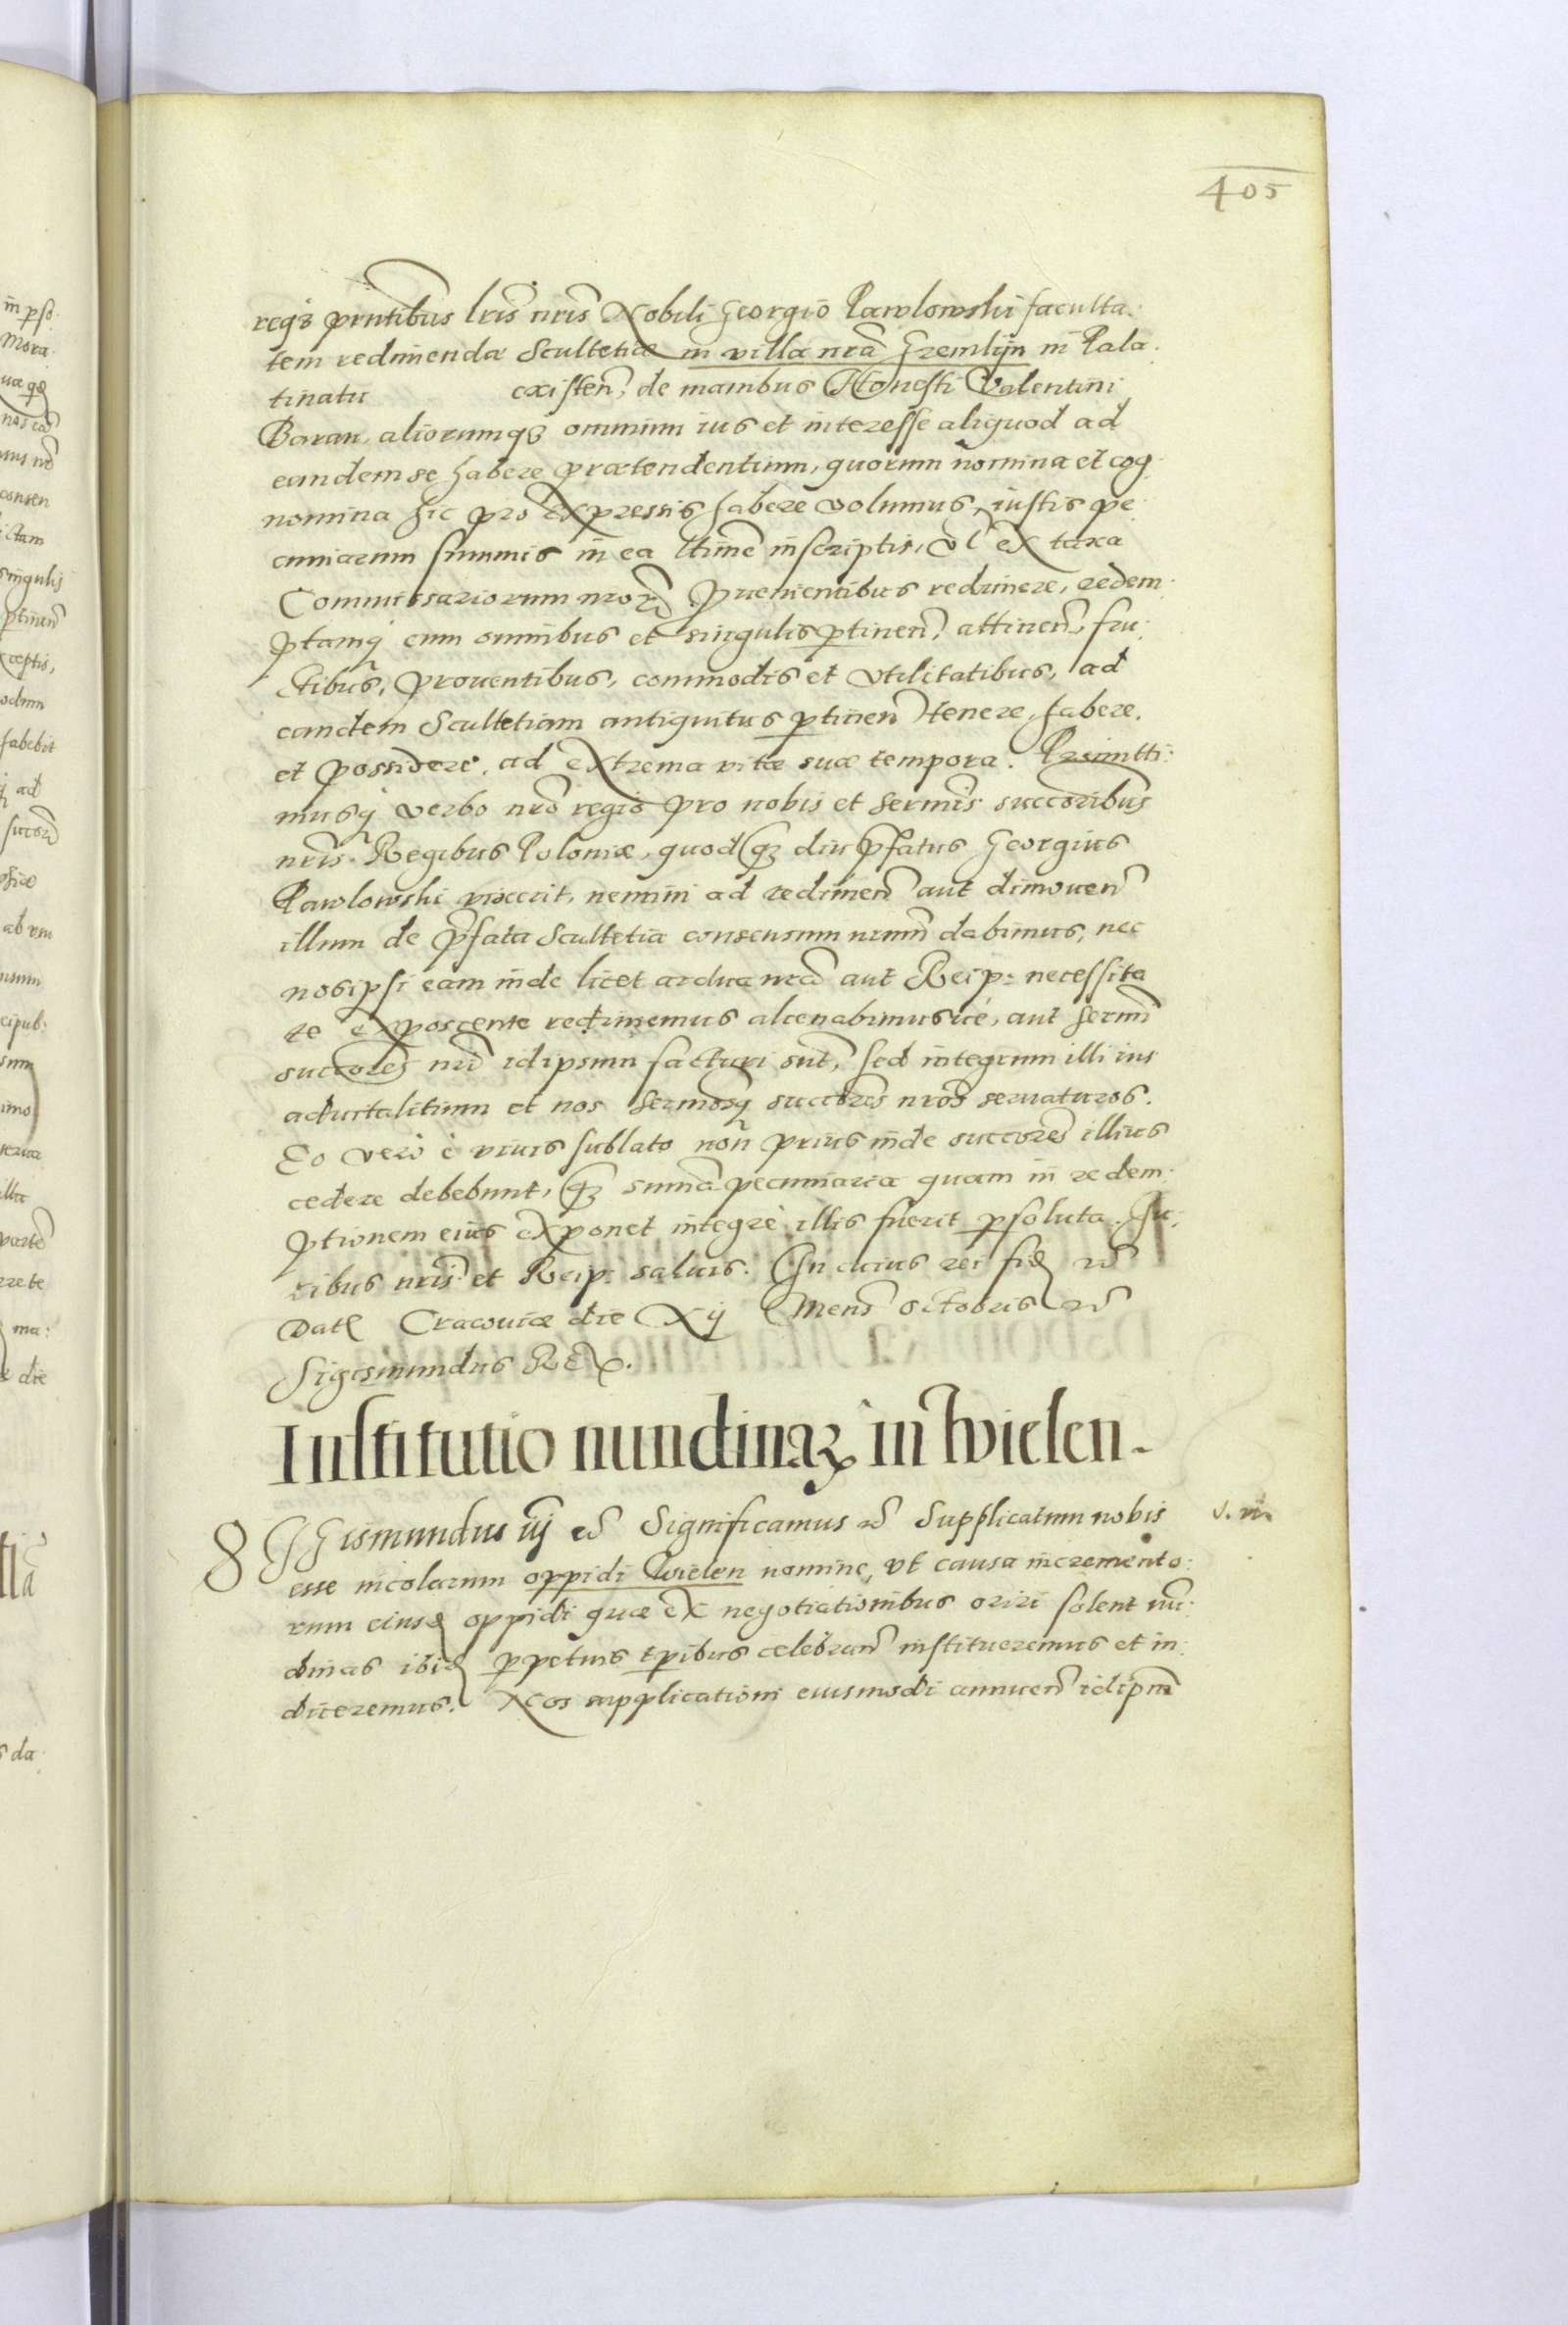 405
reqз pntibus lris nris Nobili Georgio Pawlowski faculta:
tem redimendæ Scultetiæ in villa nra Gremlijn in Pala:
tinatu existen, de manibus Honesti Valentini
Baran, aliorumqз omnium ius et interesse aliquod ad
eandem se habere prætendentium, quorum nomina et cog:
nomina hic pro expressis habere volumus, iustis pe
cuniarum summis in ea ltime inscriptis, vl ex taxa
Commissariorum nrorum prouenientibus redimere, redem:
ptamq cum omnibus et singulis ptinen, attinen, fru:
ctibus, prouentibus, commodis et vtilitatibus, ad
eandem Scultetiam antiquitus ptinen tenere, habere,
et possidere, ad extrema vitæ suæ tempora. Promitti:
musq verbo nro regio pro nobis et sermis succoribus
nris Regibus Poloniæ, quod qз diu pfatus Georgius
Pawlowski vixerit, nemini ad redimen aut dimouen
illum de pfata Scultetia consensum nrum dabimus, nec
nosipsi eam inde licet ardua nra aut Reip: necessita
te exposcente redimemus alienabimusue, aut sermi
succores nri idipsum facturi sut, sed integrum illi ius
aduitalitium et nos sermosq succores nros seruaturos.
Eo vero è viuis sublato non prius inde succores illius
cedere debebunt, qз summa pecuniaria quam in redem:
ptionem eius exponet integrè illis fuerit psoluta. Iu:
ribus nris et Reip: saluis. In cuius rei fid
Dat Cracouiæ die Xij Mens Octobris
Sigismundus Rex.
Institutio nundinaꝝ in Wielen.
SIGismundus iij Significamus Supplicatum nobis
esse incolarum oppidi Wielen nomine, vt causa incremento:
rum eiusd oppidi quæ ex negotiationibus oriri solent nu:
dinas ibid ppetuis tpibus celebran institueremus et in:
diceremus. Nos supplicationi eiusmodi annuen idipm